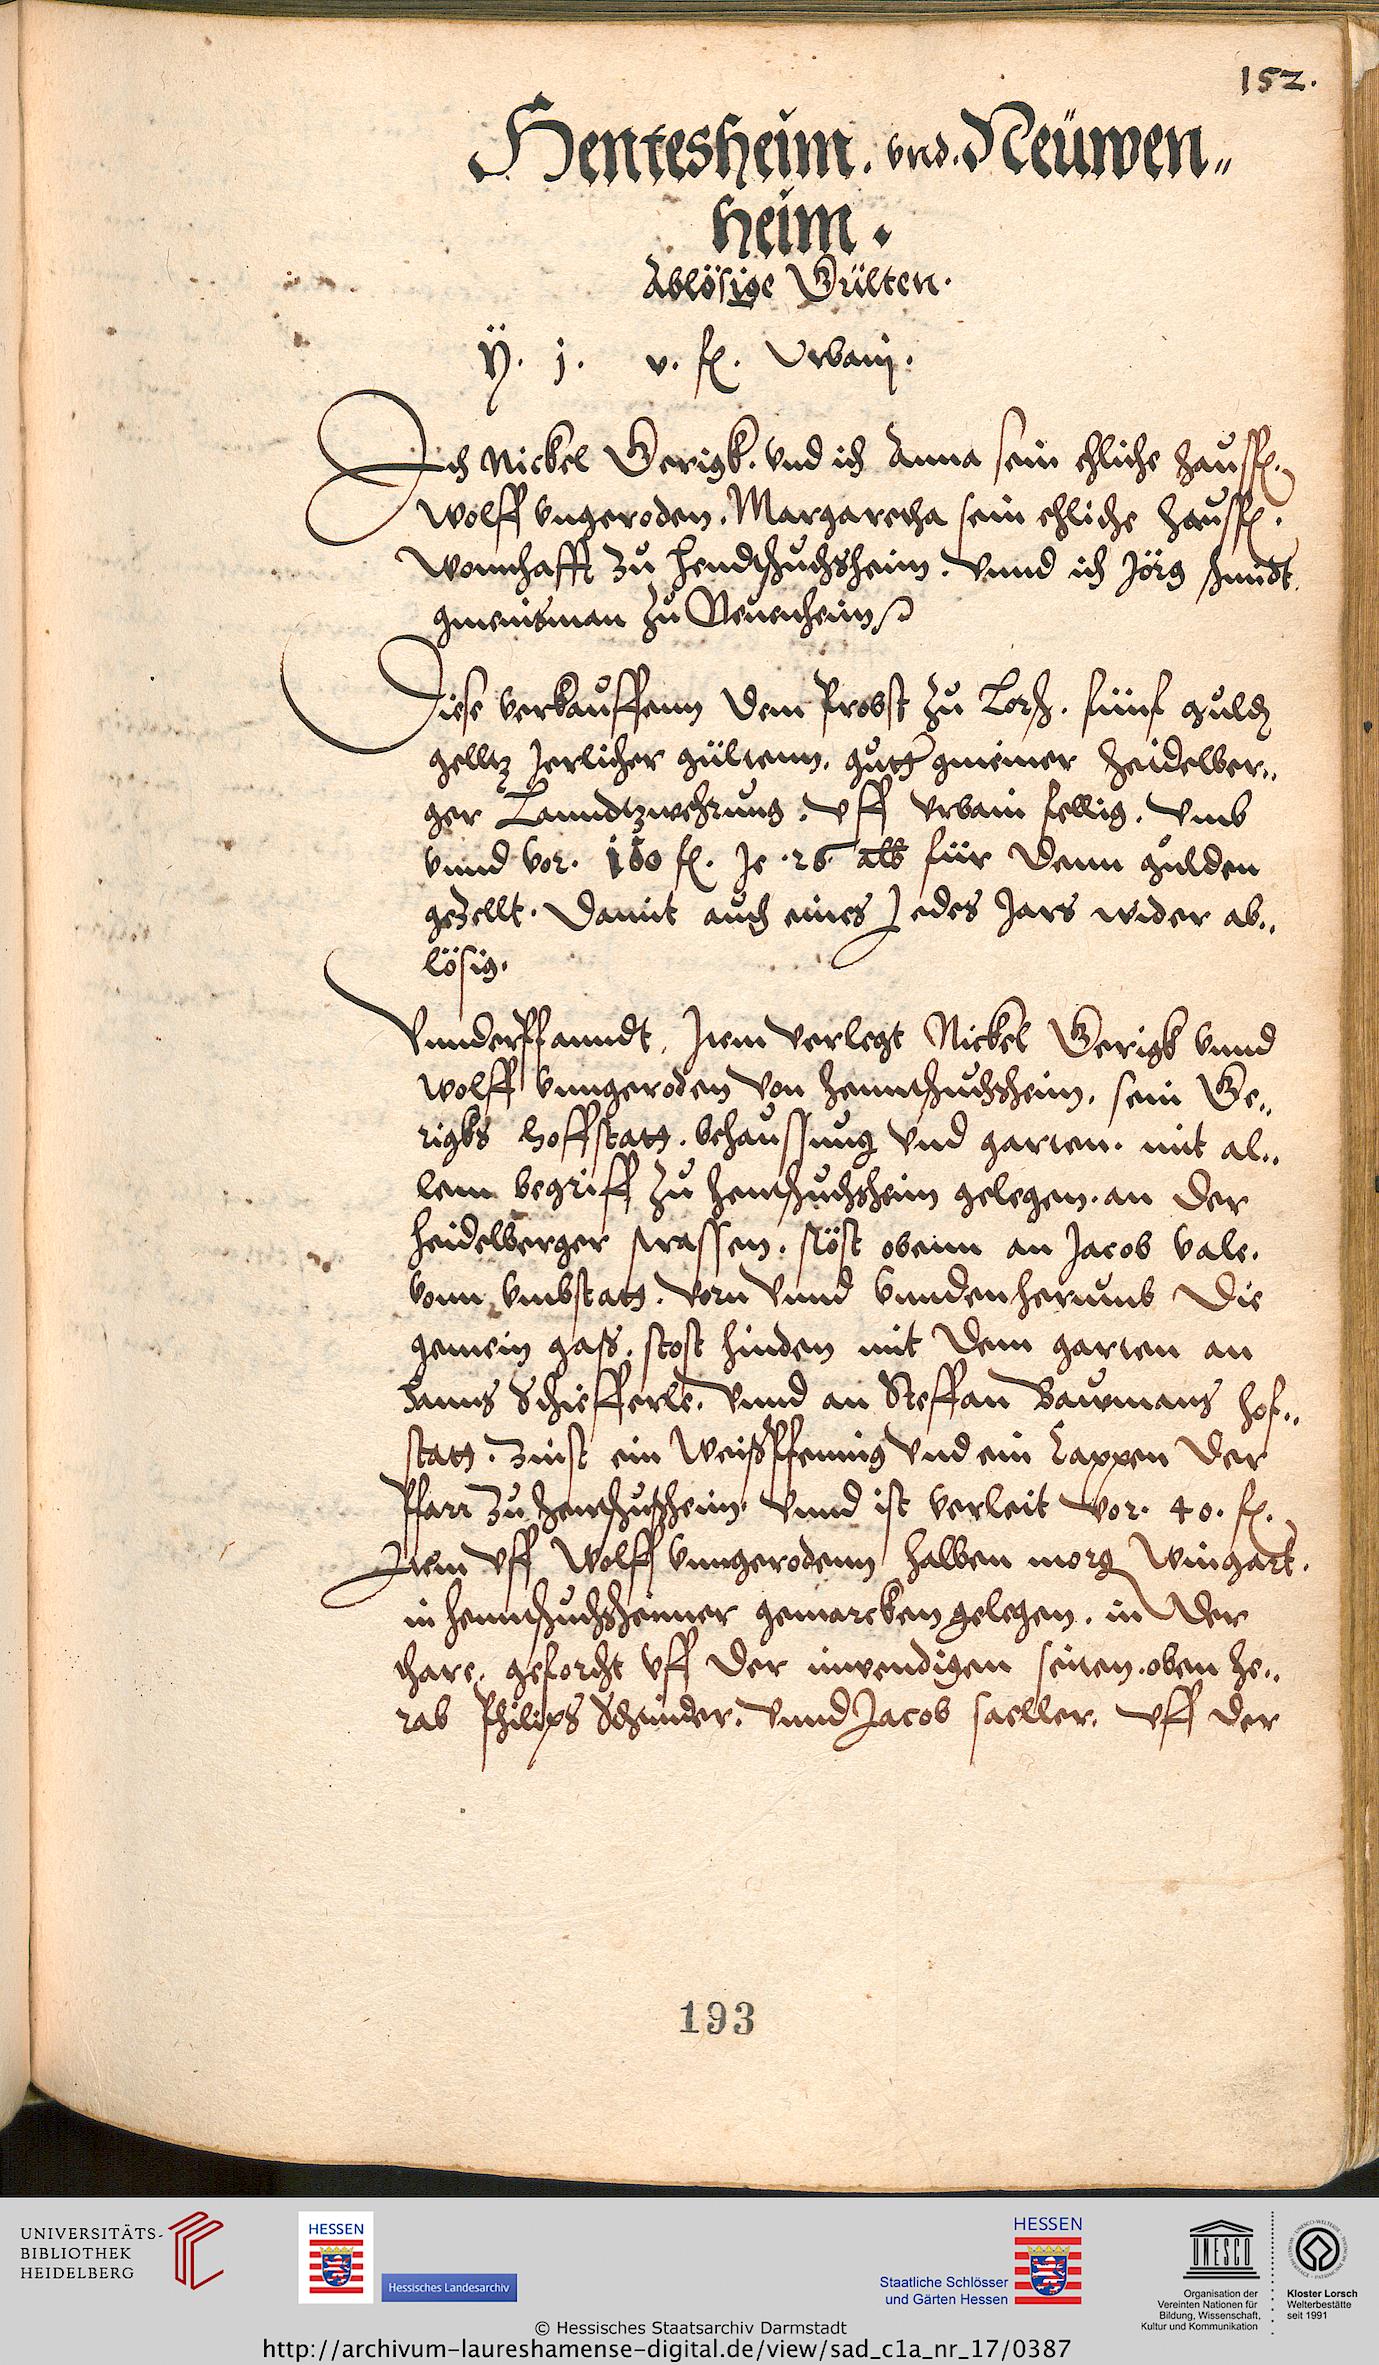 152.
Hentesheim. vnd. Neüwen„
heim.
Ablösige Gülten.
ÿ. j. v. fl. Urbanj.
Ich Nickel Gerigk. vnd ich Anna sein ehliche haussf.
Wolff vngeroden. Margaretha sein ehliche haussf.
Wonnhafft zu hendtschuchsheim. Vnnd ich Jörg
gmeinsman zu Neuenheim
Diese verkauffenn dem Probst zu Lorsch. fünf guld
gelltz Jerlicher gültenn. gutter gmeiner heidelber„
ger Lanndtzwehrung. vff vrbani fellig. vmb
vnnd vor. 100 fl. Je .26. alb für denn gulden
gezellt. damit auch eines Jedes Jars wider ab„
lösig.
Vnnderpfanndt. Item verlegt Nickel Gerigk vnnd
Wolff vnngeroden von henntschuchsheim. sein Ge„
rigks hoffstatt. behaussung vnd garten. mit al„
lem begriff zu hentschuchsheim gelegen. an der
heidelberger strassen. stöst obenn an Jacob vale.
vonn vmbstatt. vorn vnnd vnnden herumb die
gemein gass. stost hinden mit dem garten an
hanns Schefferle. vnnd an Steffan Baumans hof„
statt. Zinst ein Weißpfennig vnd ein Cappen der
Pfarr zu hentschuchsheim. vnnd ist verleit vor. 40. fl.
Item vff Wolff vnngerodenn halben morg Wingart.
in henntschuchsheimer gemarcken gelegen. in der
hare. geforcht vff der inwendigen seiten. oben he„
rab Philips Schnider. vnnd Jacob saeller. vff der
193
UNIVERSITÄTS-
BIBLIOTHEK
HEIDELBERG
HESSEN
Hessisches Landesarchiv
HESSEN
Staatliche Schlösser
und Gärten Hessen
UNESCO
Organisation der
Vereinten Nationen für
Bildung, Wissenschaft,
Kultur und Kommunikation
Kloster Lorsch
Welterbestätte
seit 1991
© Hessisches Staatsarchiv Darmstadt
http://archivum-laureshamense-digital.de/view/sad_c1a_nr_17/0387